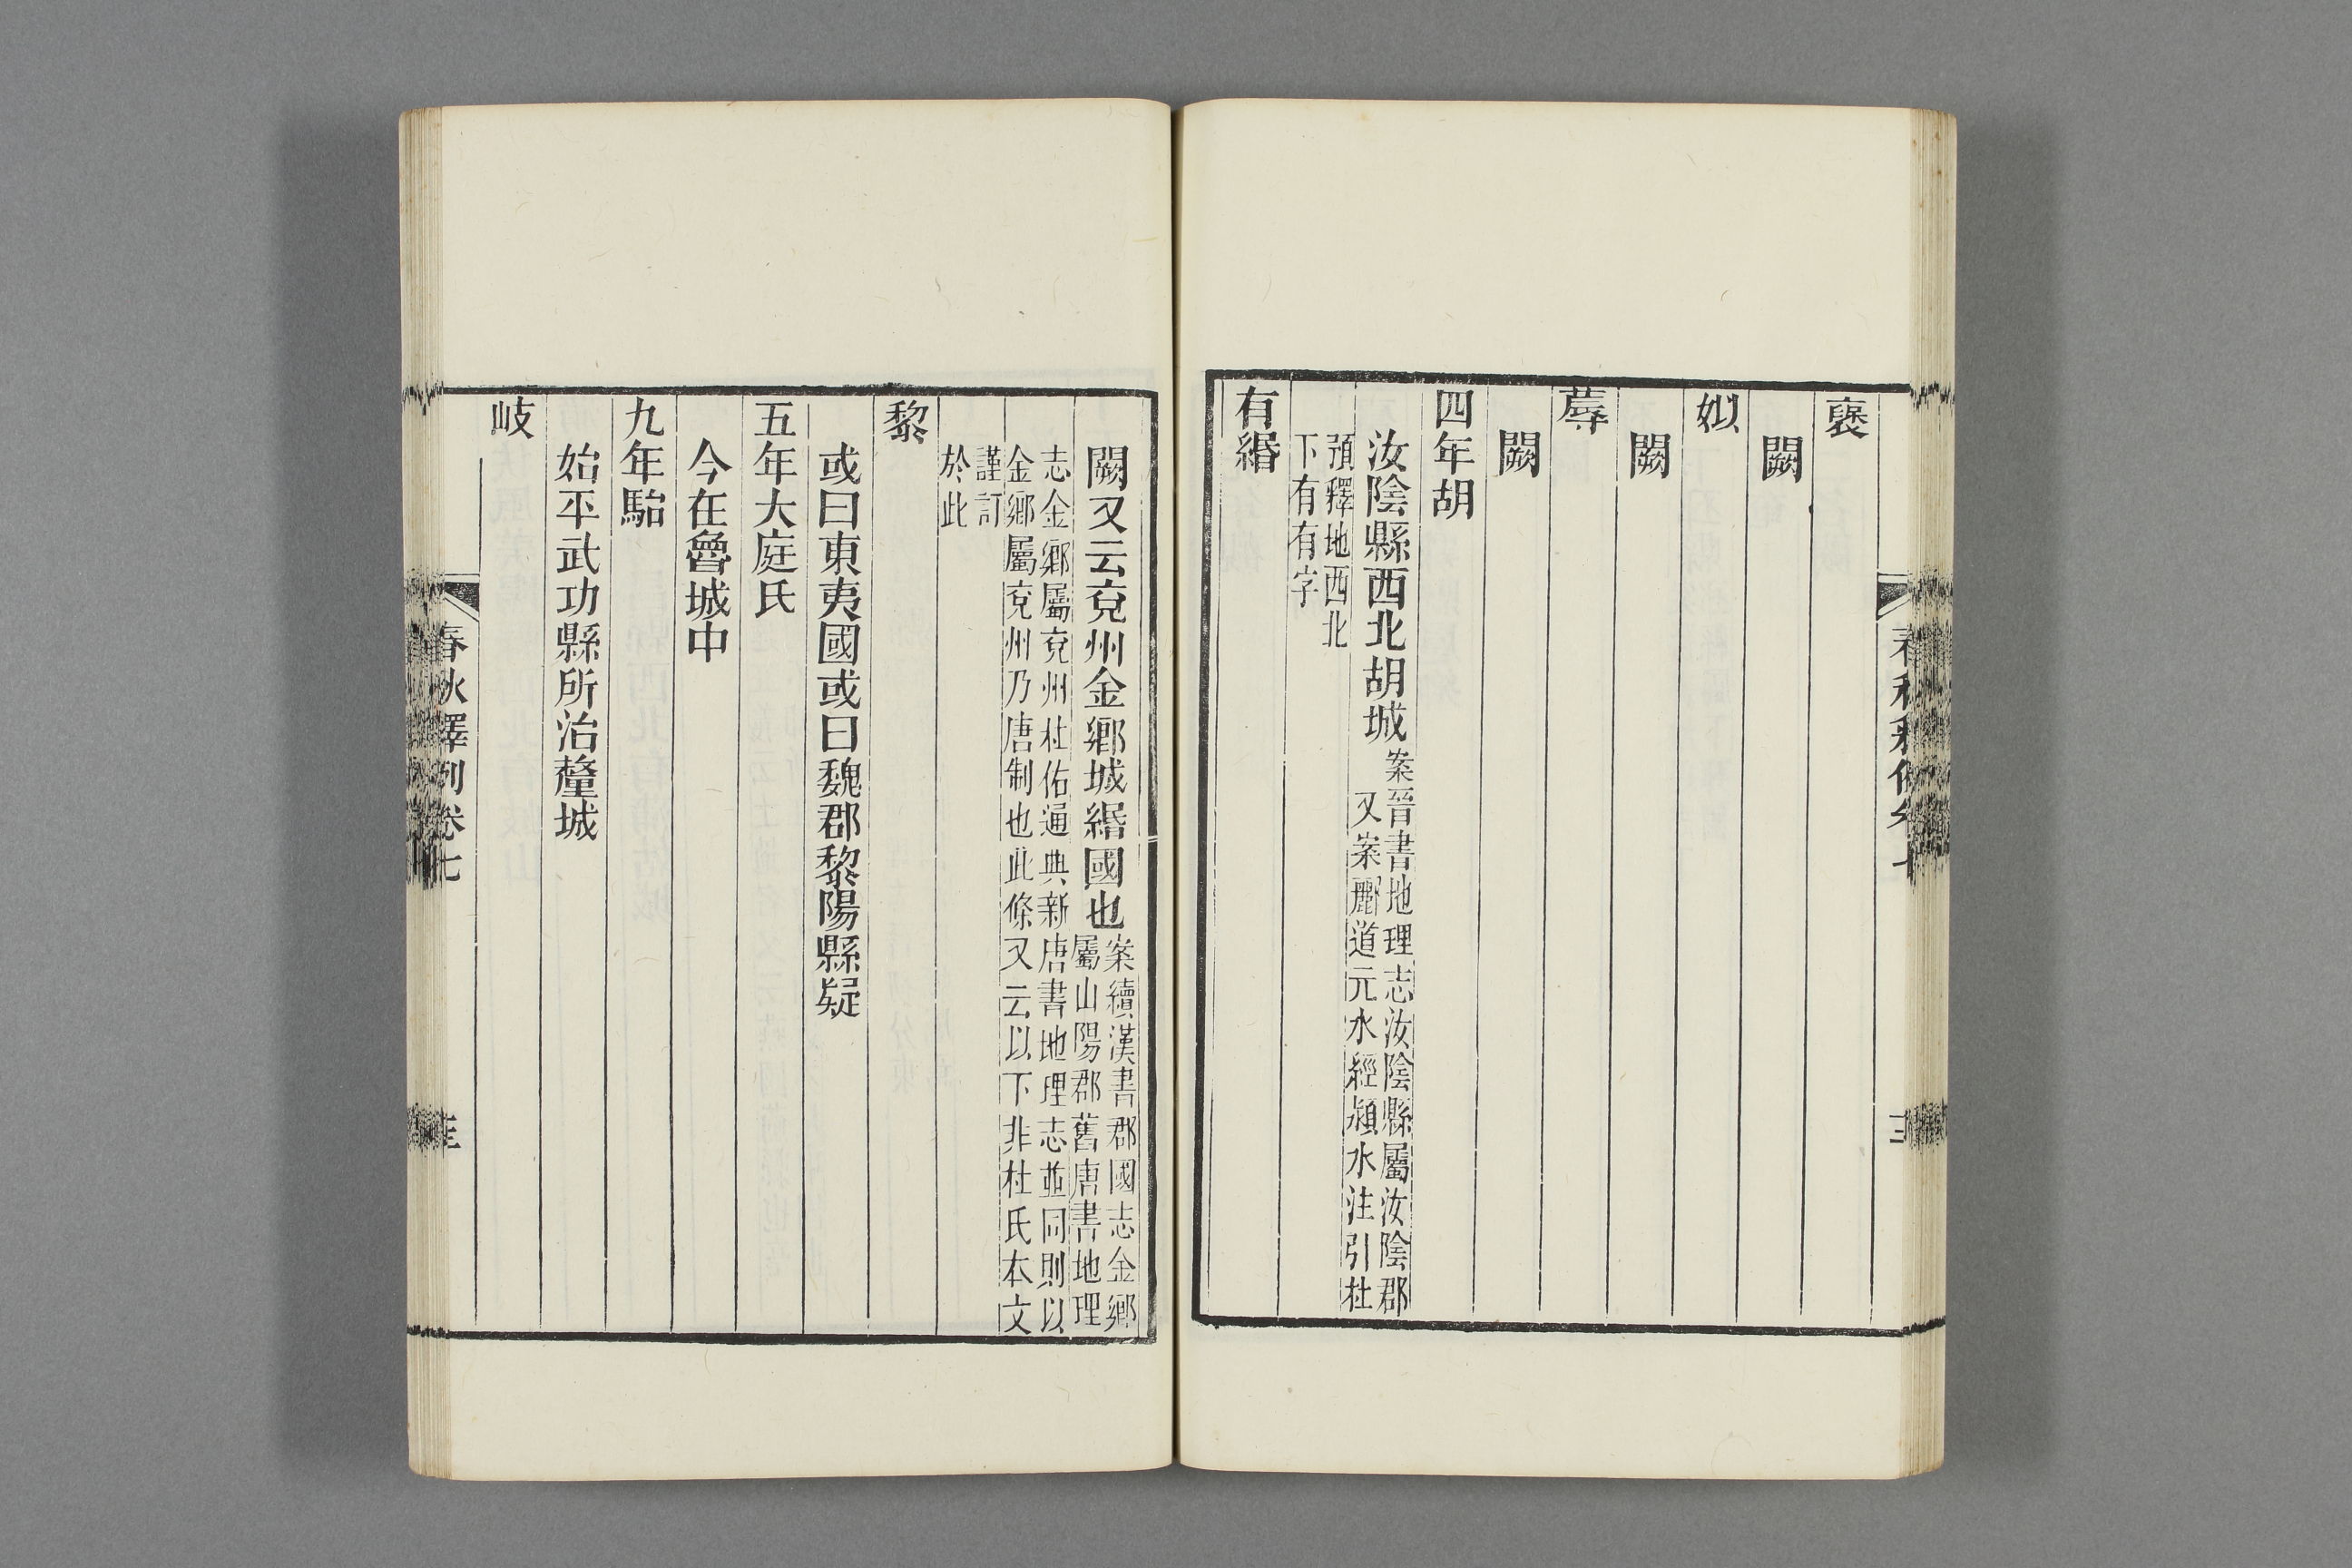 襃
闕
姒
闕
蓐
闕
四年胡
汝陰縣西北胡城案晉書地理志汝陰縣屬汝陰郡
又案酈道元水經潁水注引杜
預釋地西北
下有有字
有緡
闕又云兗州金鄉城緡國也案續漢書郡國志金鄉
屬山陽郡舊唐書地理
志金鄉屬兗州杜佑通典新唐書地理志並同則以
金鄉屬兗州乃唐制也此條又云以下非杜氏本文
謹訂
於此
黎
或曰東夷國或曰魏郡黎陽縣疑
五年大庭氏
今在魯城中
九年駘
始平武功縣所治釐城
岐
春秋釋例卷七